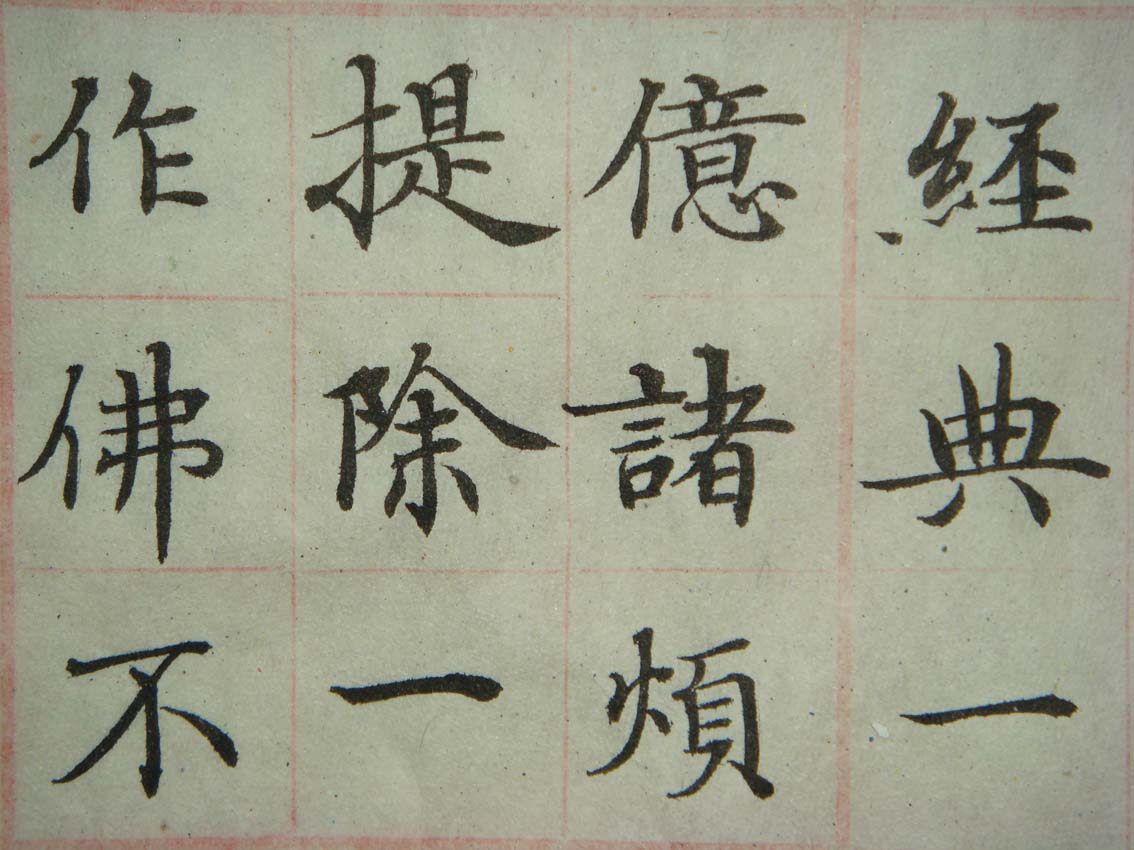 經典一
億諸煩
提除一
作佛不